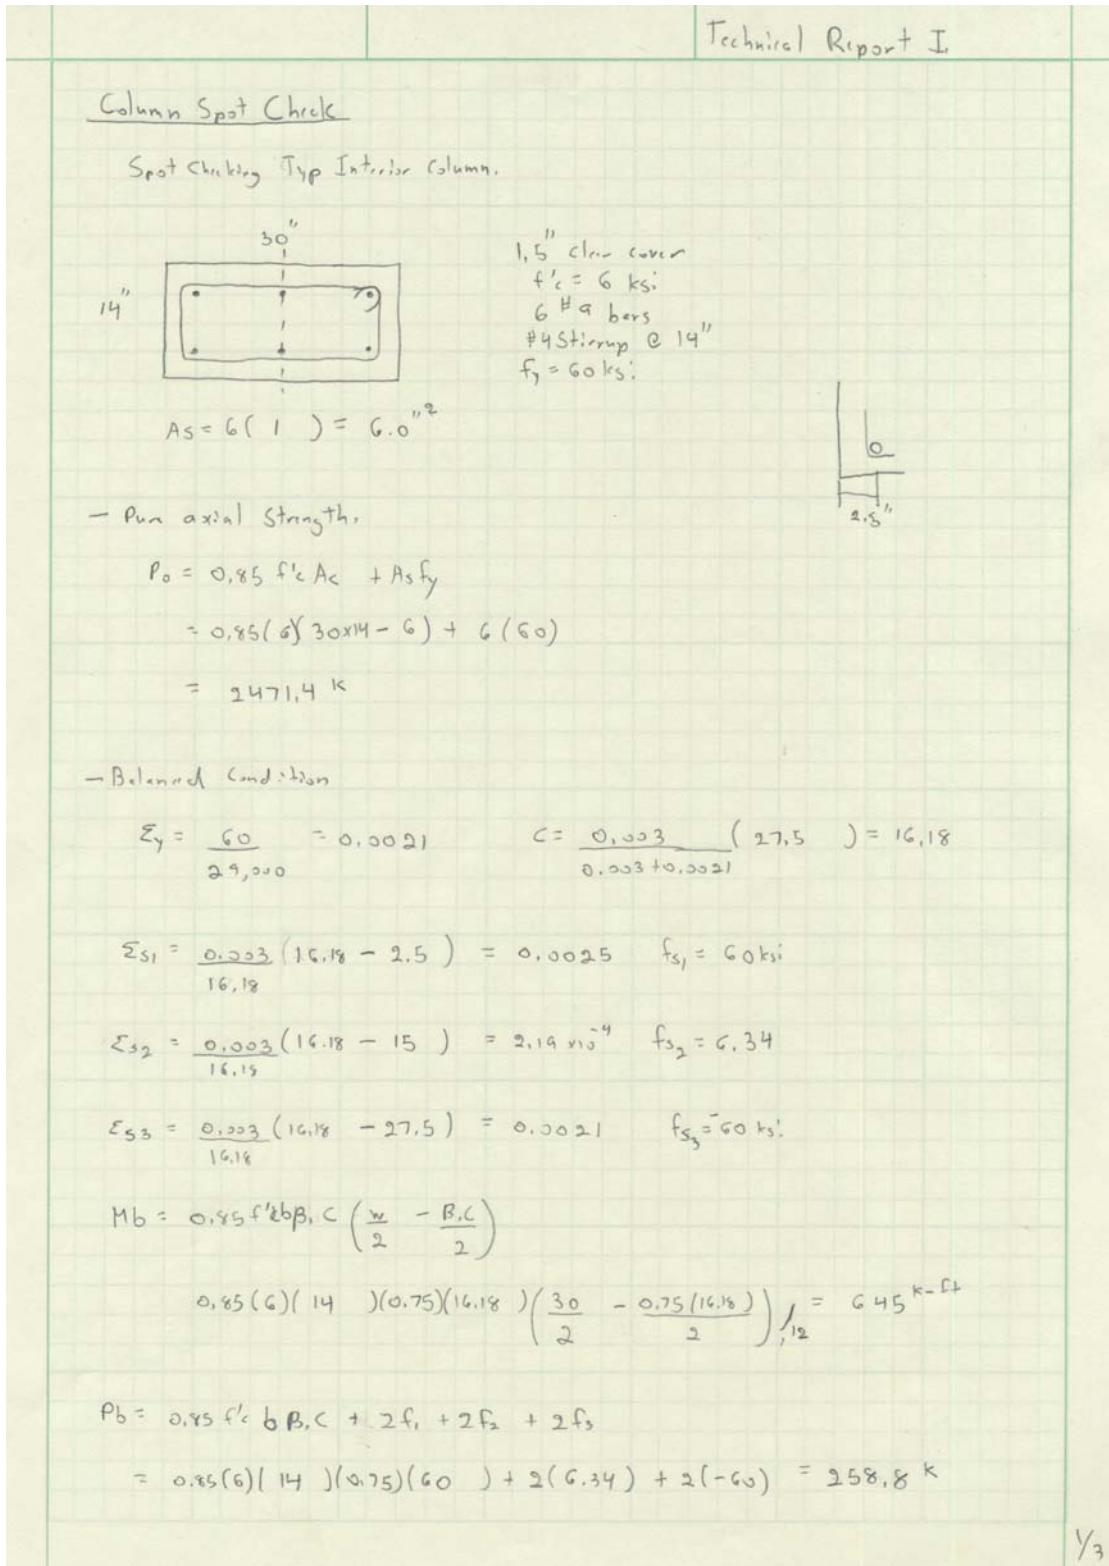 Technical Report I
Column Spot Check
Spot Checking Typ Interior Column.
30"
14"
1.5" clear cover
f'c = 6 ksi
6 #9 bars
#4 Stirrup @ 14"
fy = 60 ksi
As = 6( 1 ) = 6.0"²
2.5"
- Pure axial Strength.
P₀ = 0.85 f'c Ac + As fy
= 0.85(6)(30x14 - 6) + 6(60)
= 2471.4 k
- Balanced Condition
Σy = 60/29,000 = 0.0021 C = 0.003/(0.003+0.0021) (27.5 ) = 16.18
Σs1 = 0.003/16.18 (16.18 - 2.5 ) = 0.0025 fs₁ = 60ksi
Σs2 = 0.003/16.18 (16.18 - 15 ) = 2.19 x10⁻⁴ fs₂ = 6.34
Σs3 = 0.003/16.18 (16.18 - 27.5) = 0.0021 fs₃ = -60 ksi
Mb = 0.85 f'c b β₁ C (w/2 - β₁C/2)
0.85(6)( 14 )(0.75)(16.18 )(30/2 - 0.75(16.18)/2) /12 = 645 k-ft
Pb = 0.85 f'c b β₁ C + 2f₁ + 2f₂ + 2f₃
= 0.85(6)( 14 )(0.75)(60 ) + 2(6.34) + 2(-60) = 258.8 k
1/3